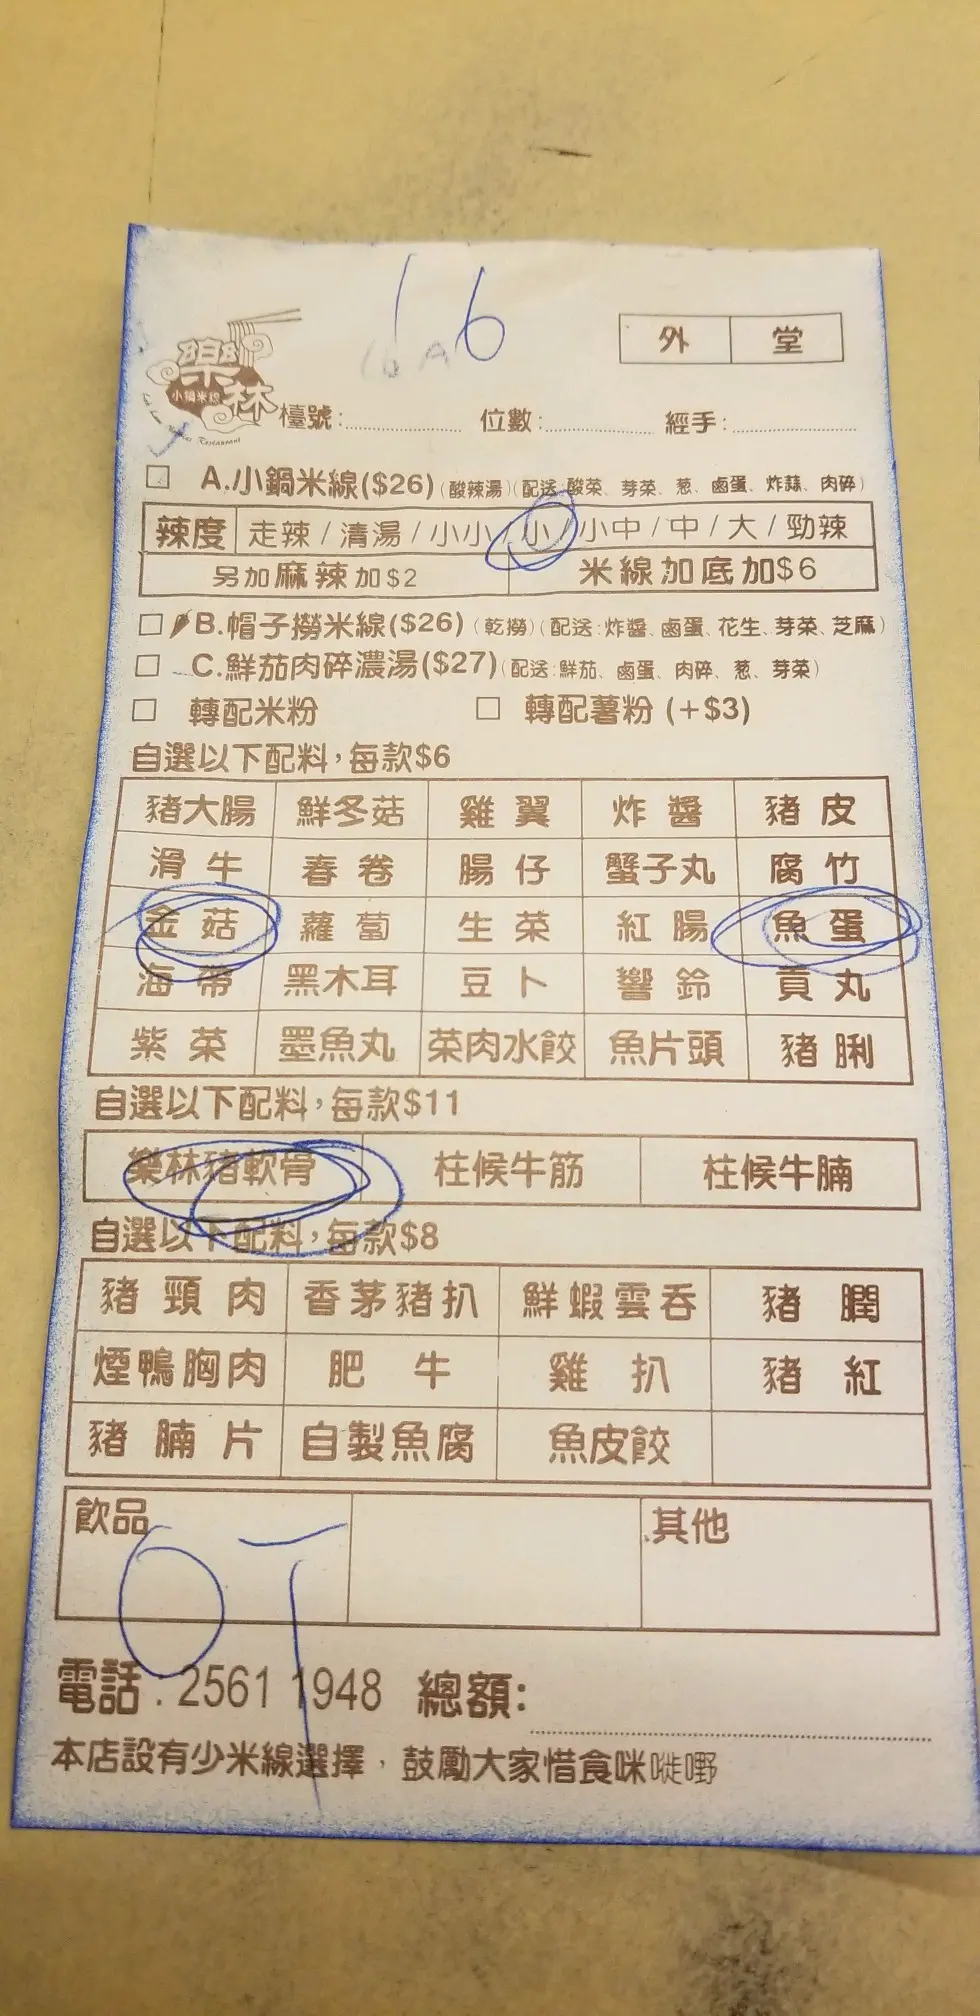 16
16A
外 堂
樂林
小鍋米線
Restaurant
檯號: 位數: 經手:
□ A.小鍋米線($26)(酸辣湯)(配送:酸菜、芽菜、葱、鹵蛋、炸蒜、肉碎)
辣度 走辣/清湯/小小/小/小中/中/大/勁辣
另加麻辣加$2 米線加底加$6
□ B.帽子撈米線($26)(乾撈)(配送:炸醬、鹵蛋、花生、芽菜、芝麻)
□ C.鮮茄肉碎濃湯($27)(配送:鮮茄、鹵蛋、肉碎、葱、芽菜)
□ 轉配米粉 □ 轉配薯粉 (+$3)
自選以下配料,每款$6
豬大腸 鮮冬菇 雞翼 炸醬 豬皮
滑牛 春卷 腸仔 蟹子丸 腐竹
金菇 蘿蔔 生菜 紅腸 魚蛋
海帶 黑木耳 豆卜 響鈴 貢丸
紫菜 墨魚丸 菜肉水餃 魚片頭 豬脷
自選以下配料,每款$11
樂林豬軟骨 柱候牛筋 柱候牛腩
自選以下配料,每款$8
豬頸肉 香茅豬扒 鮮蝦雲吞 豬膶
煙鴨胸肉 肥牛 雞扒 豬紅
豬腩片 自製魚腐 魚皮餃
飲品 其他
OT
電話:2561 1948 總額:
本店設有少米線選擇,鼓勵大家惜食咪嘥嘢